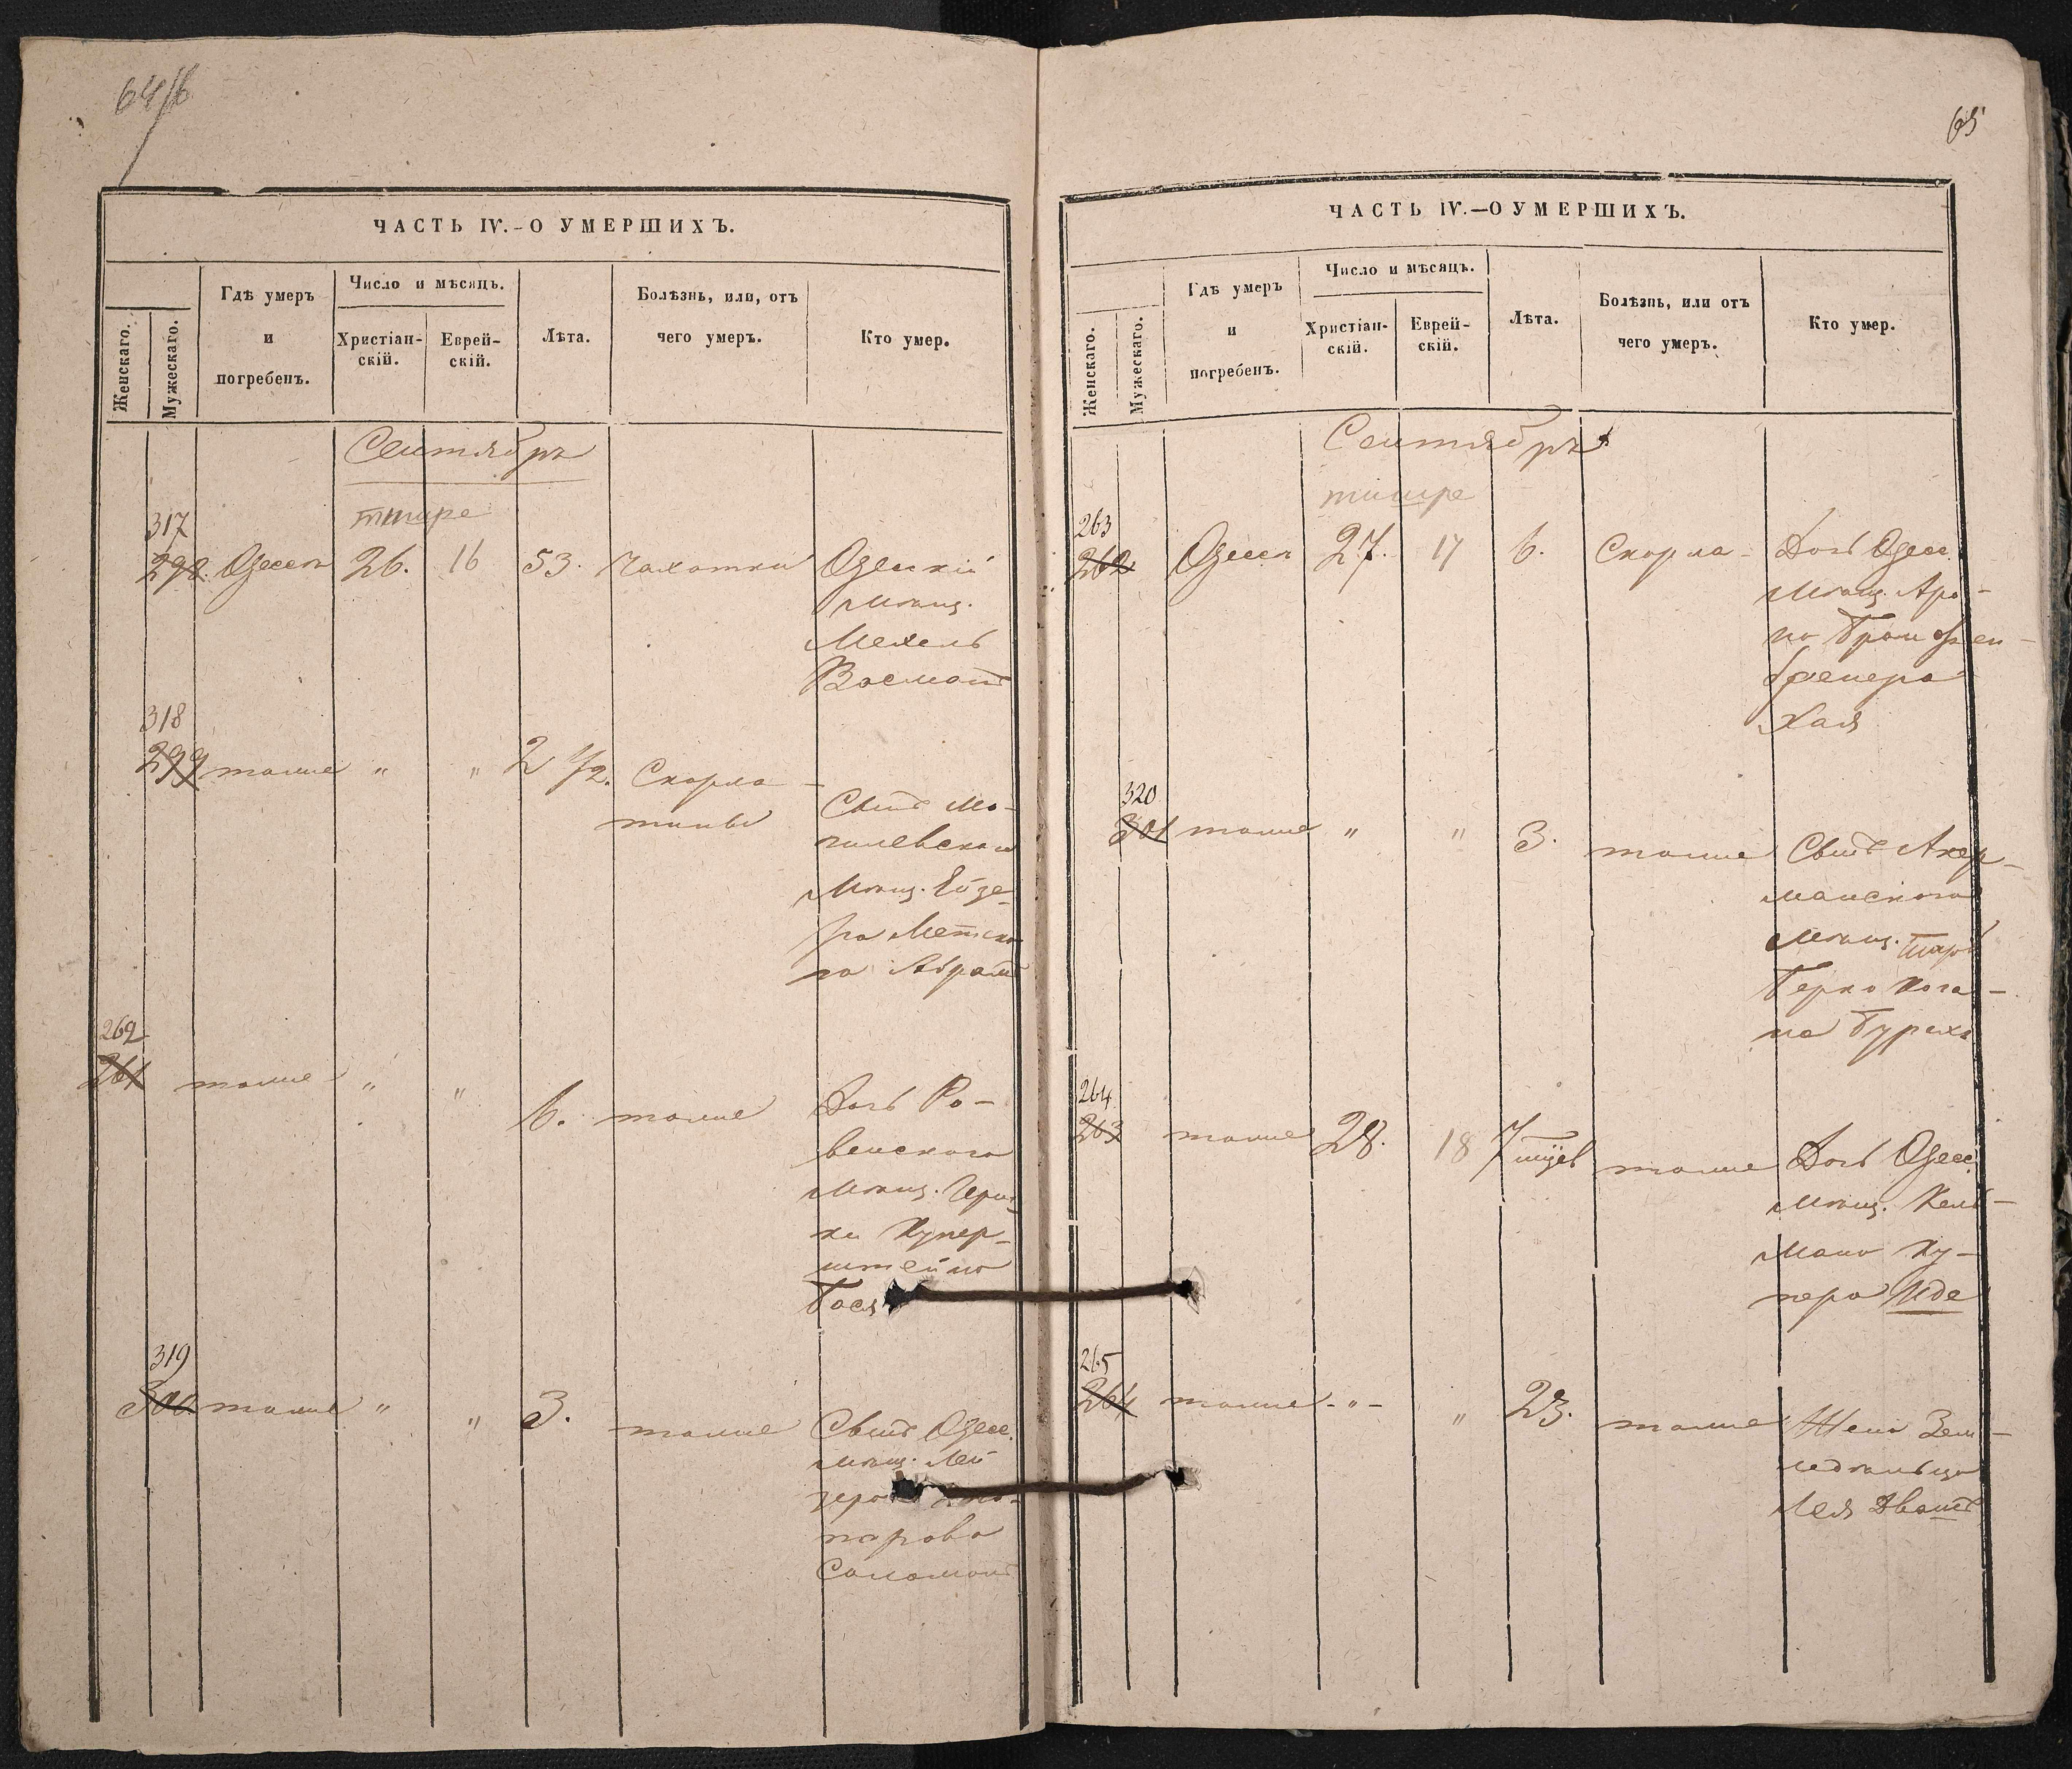 64/б
ЧАСТЬ IV.-О УМЕРШИХЪ.
Женскаго.
Мужескаго.
Гдѣ умеръ
и
погребенъ.
Число и мѣсяцъ.
Христіан-
скій.
Еврей-
скій.
Лѣта.
Болѣзнь, или, отъ
чего умеръ.
Кто умер.
Сентябрь
тишре
317
298. Одесса 26. 16 53. Чахотки Одескій
мѣщ.
Мехель
Восмонъ
318
299 тоже " " 2 1/2. Скорла-
тины
Сынъ Мо-
гилевскаго
мѣщ. Ейзе-
ра
Абрамъ
262
261 тоже " " 6. тоже Дочь Ро-
венскаго
мѣщ. Герш-
ки Купер-
штейна
Бася
319
300. тоже " " 3. тоже Сынъ Одесс.
мѣщ. Лей
зера
парова
Соломонъ
65
ЧАСТЬ IV.—О УМЕРШИХЪ.
Женскаго.
Мужескаго.
Гдѣ умеръ
и
погребенъ.
Число и мѣсяцъ.
Христіан-
скій.
Еврей-
скій.
Лѣта.
Болѣзнь, или отъ
чего умеръ.
Кто умер.
Сентябрь
тишре
263
262 Одесса 27. 17 6. Скорла- Дочь Одесс.
мѣщ. Аро-
на
бренера
Хая
320
301 тоже " " 3. тоже Сынъ Акер-
манскаго
мѣщ.
Берко Кога-
на Бурехъ
264
263 тоже 28. 18 7 тоже Дочь Одесс.
мѣщ. Кель-
мана Ку-
пера Иде
265
264 тоже - " - " 23. тоже Жена Зем-
ледѣльца
Лея Двоша